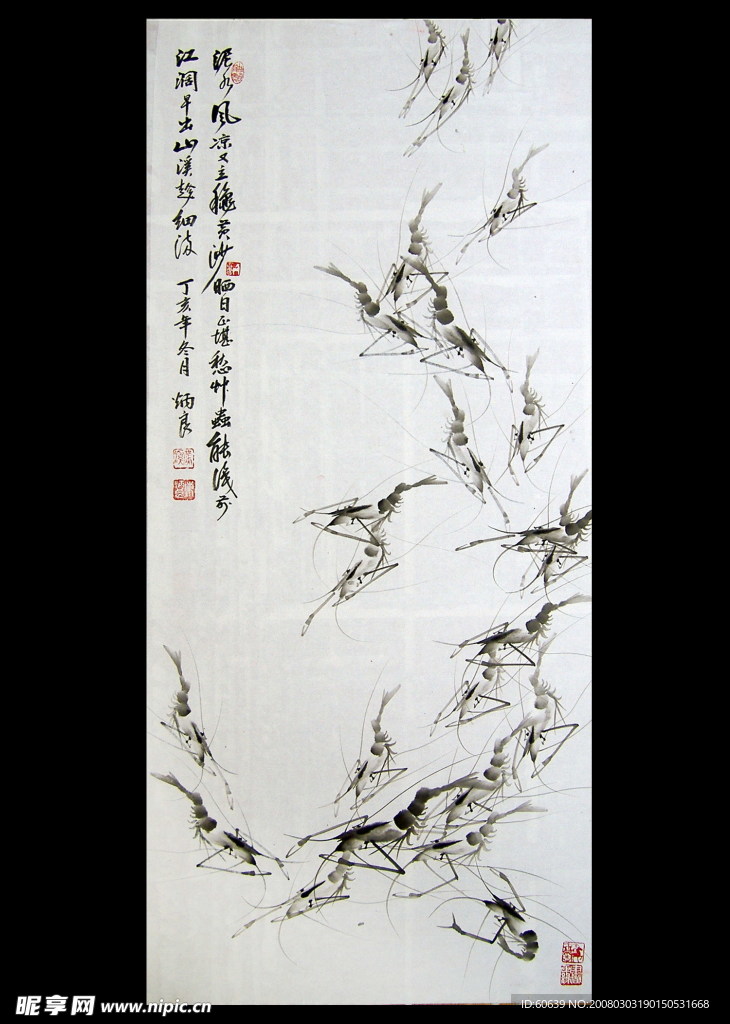 泥水风凉又立秋黄沙晒日正堪愁草虫能浅前
江润早出山溪趁细流 丁亥年冬月 炳良
昵享网 www.nipic.cn
ID:60639 NO:20080303190150531668